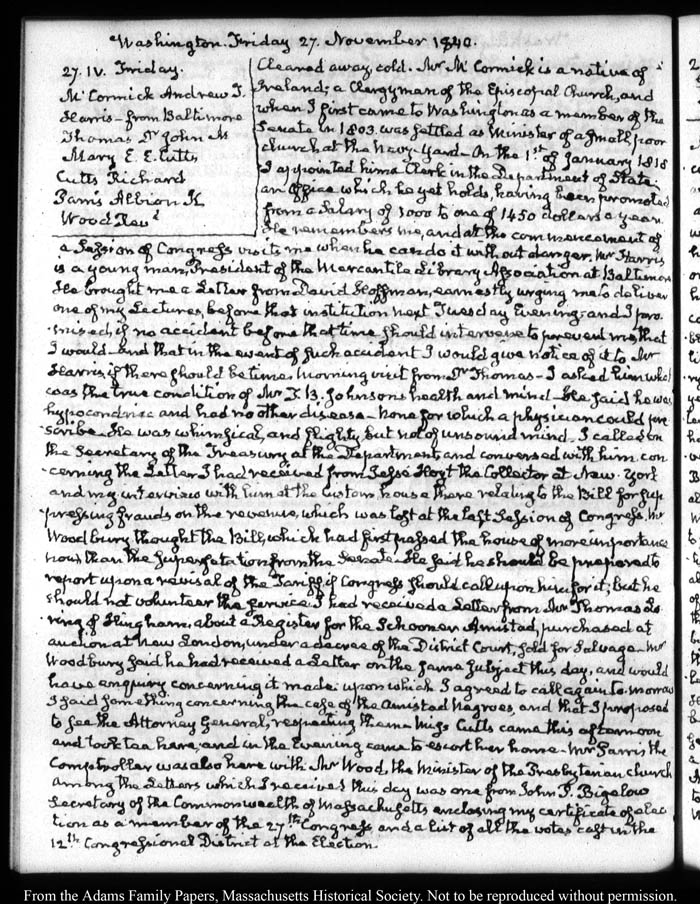 Washington. Friday 27. November 1840.
27. IV. Friday.
McCormick Andrew T.
Harris - from Baltimore
Thomas Dr John M
Mary E. E. Cutts
Cutts Richard
Parris Albion K
Wood Revd
Cleared away, cold. Mr McCormick is a native of
Ireland; a Clergyman of the Episcopal Church, and
when I first came to Washington as a member of the
Senate in 1803. was settled as Minister of a small poor
church at the Navy-Yard - On the 1st of January 1818
I appointed him a Clerk in the Department of State.
an Office which he yet holds, having been promoted
from a salary of 1000 to one of 1450 dollars a year.
He remembers me, and at the commencement of
a Session of Congress visits me when he can do it without danger. Mr Harris
is a young man, President of the Mercantile Library Association at Baltimore
He brought me a Letter from David Hoffman, earnestly urging me to deliver
one of my Lectures, before that institution next Tuesday Evening; and I pro
mised, if no accident before that time should intervene to prevent me, that
I would - and that in the event of such accident I would give notice of it to Mr
Harris, if there should be time. Morning visit from Dr Thomas - I asked him what
was the true condition of Mr T. B. Johnson's health and mind - He said he was
hypocondriac and had no other disease - none for which a physician could pre
scribe - He was whimsical, and flighty but not of unsound mind. I called on
the Secretary of the Treasury at the Department and conversed with him con
cerning the Letter I had received from Jesse Hoyt the Collector at New-York
and my interview with him at the Custom house there relating to the Bill for sup
pressing frauds on the revenue, which was lost at the last Session of Congress. Mr
Woodbury thought the Bill, which had first passed the house of more importance
now than the superfetation from the Senate - He said he should be prepared to
report upon a revisal of the Tariff if Congress should call upon him for it; but he
should not volunteer the service. I had received a Letter from Mr Thomas Lo
ring of Hingham, about a Register for the Schooner Amistad, purchased at
auction at New London, under a decree of the District Court, sold for Salvage - Mr
Woodbury said he had received a Letter on the same subject this day, and would
have enquiry concerning it made upon which I agreed to call again to-morrow
I said something concerning the case of the Amistad Negroes, and that I proposed
to see the Attorney General, respecting them. Miss Cutts came this afternoon
and took tea here, and in the Evening came to escort her home - Mr Parris the
Comptroller was also here with Mr Wood, the Minister of the Presbyterian church
Among the Letters which I received this day was one from John P. Bigelow
Secretary of the Commonwealth of Massachusetts enclosing my certificate of elec
tion as a member of the 27th Congress, and a list of all the votes cast in the
12th Congressional District at the Election.
From the Adams Family Papers, Massachusetts Historical Society. Not to be reproduced without permission.